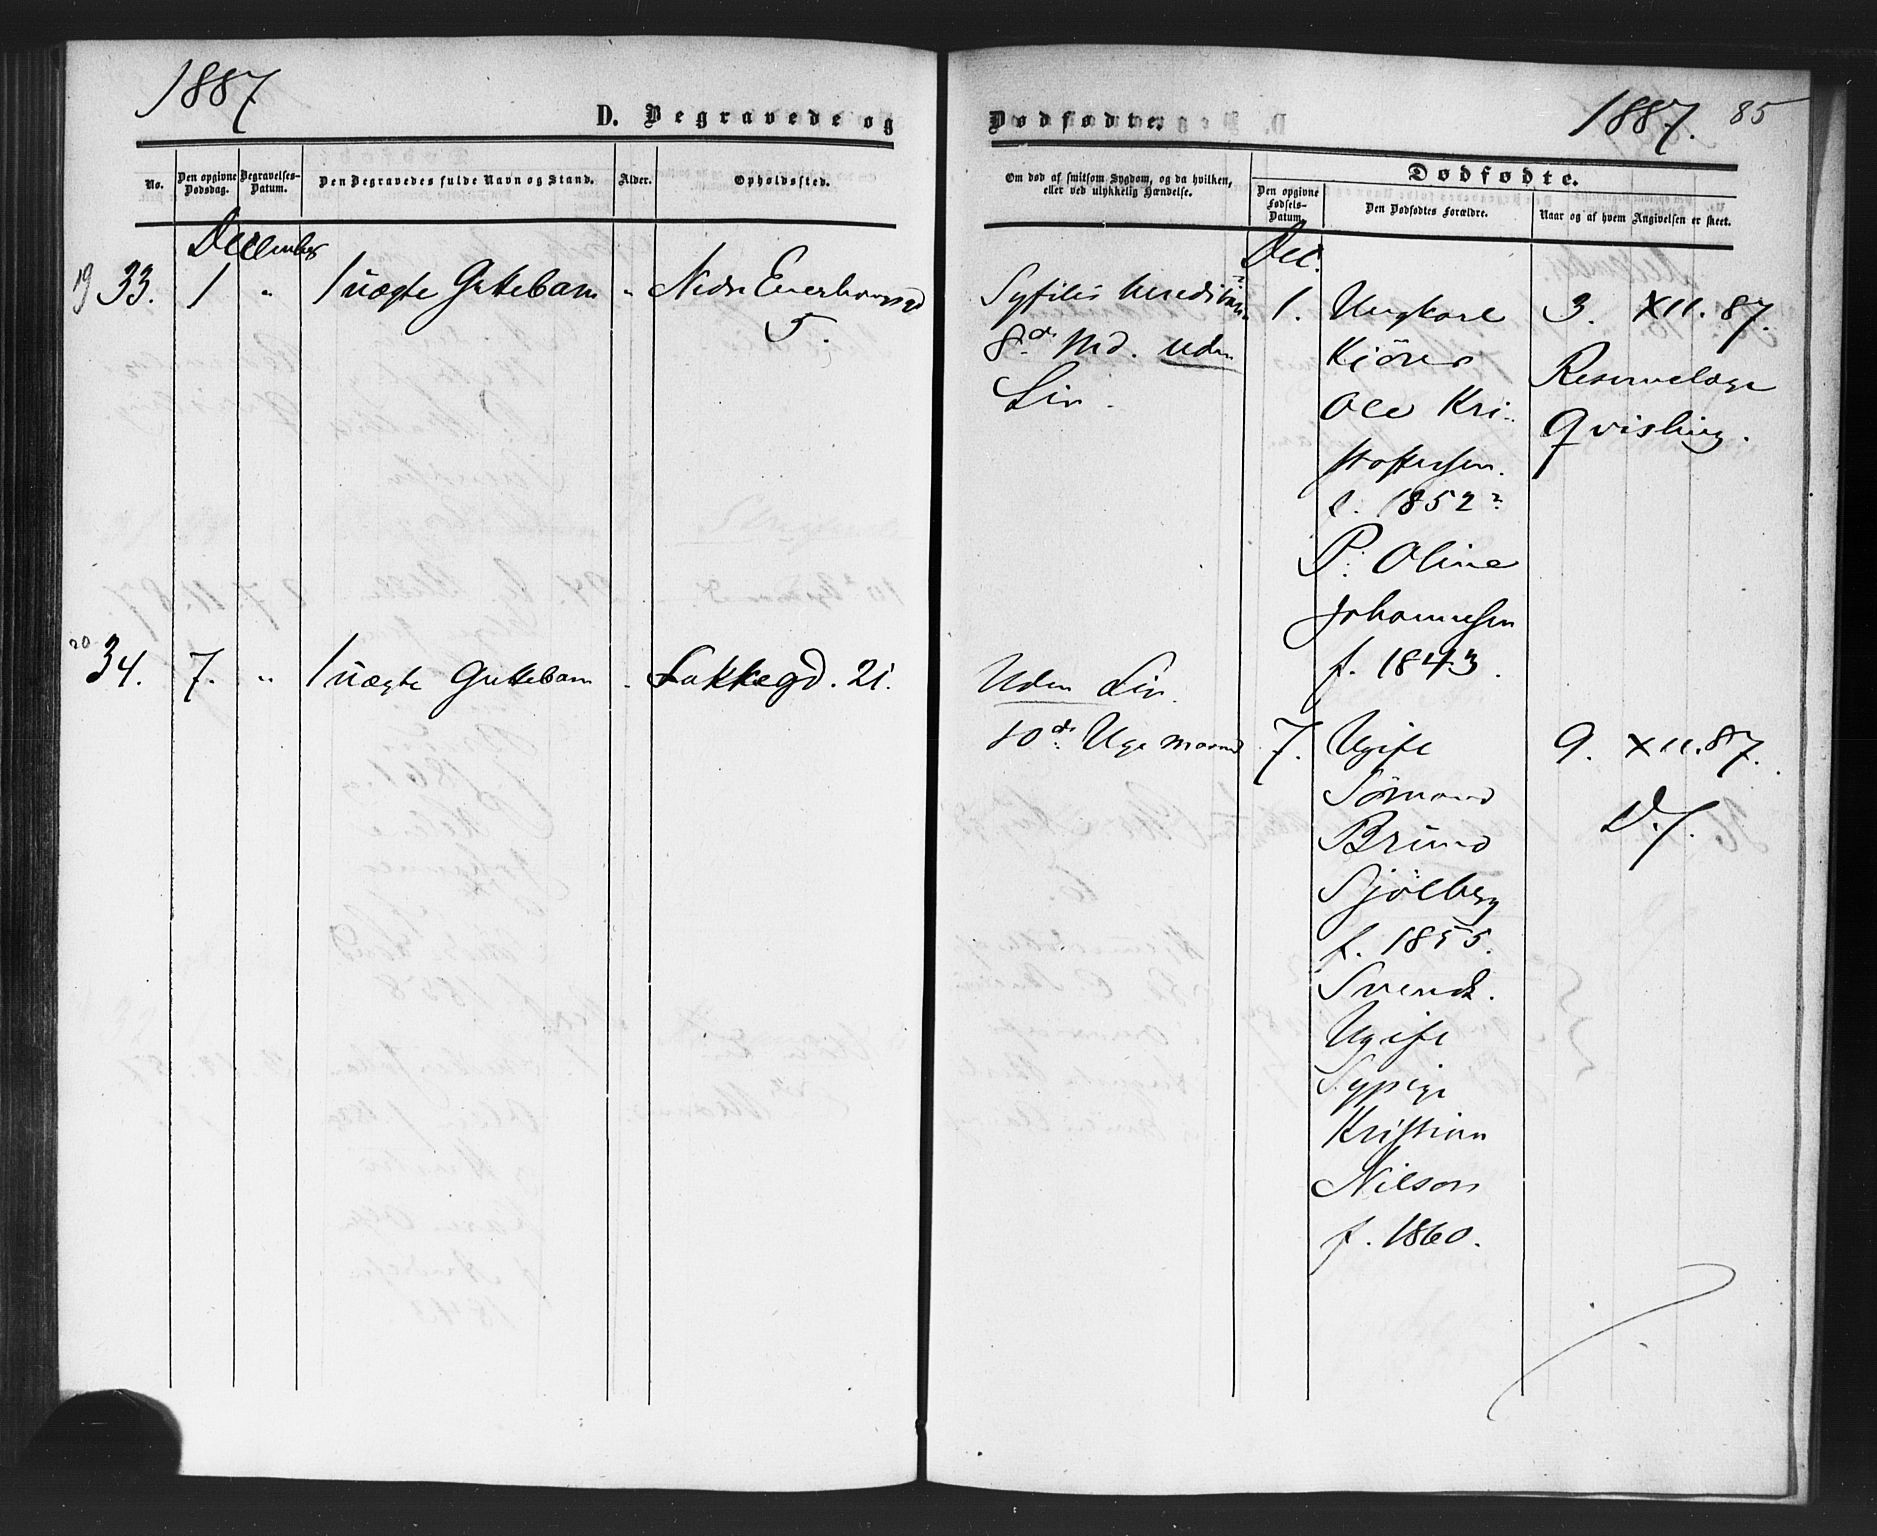 1887
D. Begravede og
No.
Den opgivne Dødsdag.
Begravelses-Datum.
Den Begravedes fulde Navn og Stand.
Alder.
Opholdssted.
December
19 33. 1 " 1 uægte Guttebarn "
5.
20 34. 7. " 1 uægte Guttebarn " Lakkegd. 21.
Dødfødte.
1887. 85
Om død af smitsom Sygdom, og da hvilken, eller ved ulykkelig Hændelse.
Dødfødte.
Den opgivne Fødsels-Datum
Den Dødfødtes Forældre.
Naar og af hvem Angivelsen er skeet.
Dec.
Syfilis
8de Md. uden
Liv.
1.
Ungkarl
Kjörer
Ole Kri-
stoffersen
f. 1852?
P. Oline
Johannesen
f. 1843.
3. XII. 87.
Reservelæge
Qvisling.
Uden Liv.
10de Uge
7.
Ugift
Sömand
Bruno
Sjölberg
f. 1855.
Svensk.
Ugift
Sypige
Kristina
Nilson
f. 1860.
9. XII. 87.
D. S.